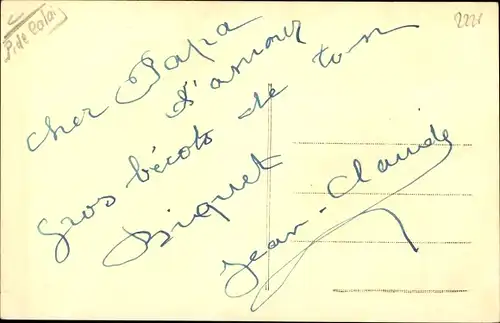 P. de Calais
2221
cher Papa
d'amour
gros bécots de ton
Biquet
Jean-Claude